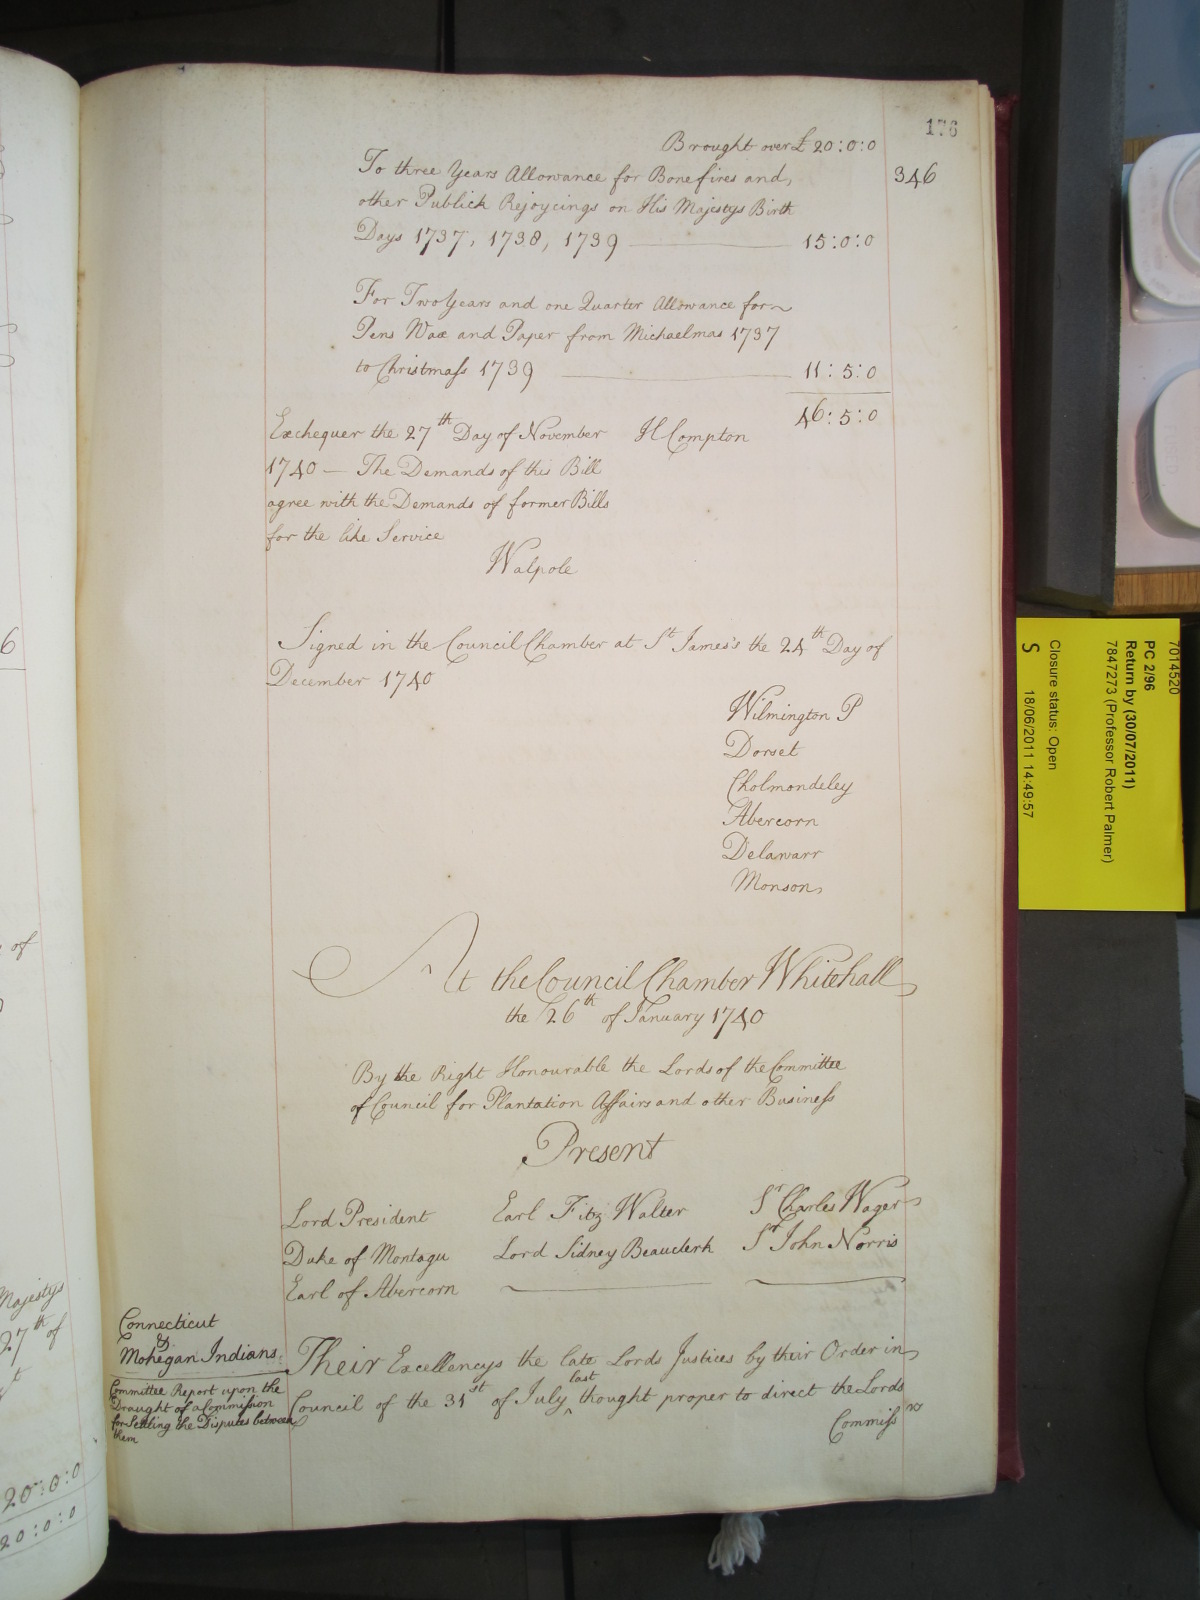 176
346
Brought over £ 20:0:0
To three Years Allowance for Bonefires and,
other Publick Rejoycings on His Majestys Birth
Days 1737, 1738, 1739 15:0:0
For Two Years and one Quarter Allowance for
Pens Wax and Paper from Michaelmas 1737
to Christmass 1739 11:5:0
46:5:0
Exchequer the 27th Day of November H Compton
1740 — The Demands of this Bill
agree with the Demands of former Bills
for the like Service
Walpole
Signed in the Council Chamber at St James's the 24th Day of
December 1740
Wilmington P
Dorset
Cholmondeley
Abercorn
Delawarr
Monson
At the Council Chamber Whitehall
the 26th of January 1740
By the Right Honourable the Lords of the Committee
of Council for Plantation Affairs and other Business
Present
Lord President Earl Fitz Walter Sr Charles Wager
Duke of Montagu Lord Sidney Beauclerk Sr John Norris
Earl of Abercorn
Connecticut
&
Mohegan Indians.
Committee Report upon the
Draught of a Commission
for Settling the Disputes between
them
Their Excellencys the late Lords Justices by their Order in
Council of the 31st of July last thought proper to direct the Lords
Commissrs
6
of
Majestys
27th of
20:0:0
20:0:0
7014520
PC 2/96
Return by (30/07/2011)
7847273 (Professor Robert Palmer)
Closure status: Open
S 18/06/2011 14:49:57